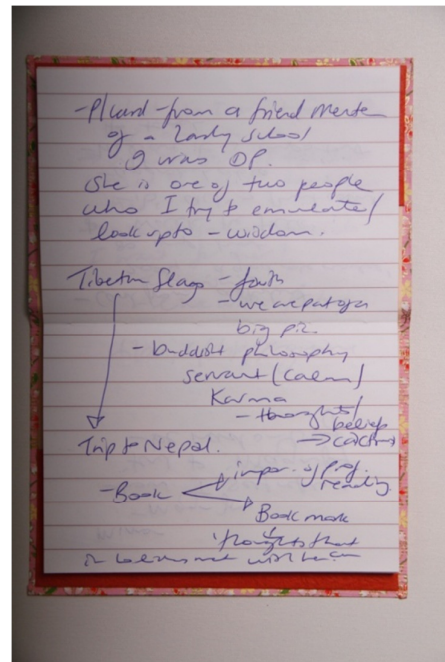 from a friend
of a school
I was DP.
She is one of two people
who I try to emmulate/
look up to - wisdom.
Tibetan flags - faith
- we are part of a
big pic.
- buddist philosophy
servant (calm)
Karma
- thoughts/
beliefs
→ 
Trip to Nepal.
- Book impor. of prof.
reading.
Book mark
thoughts that